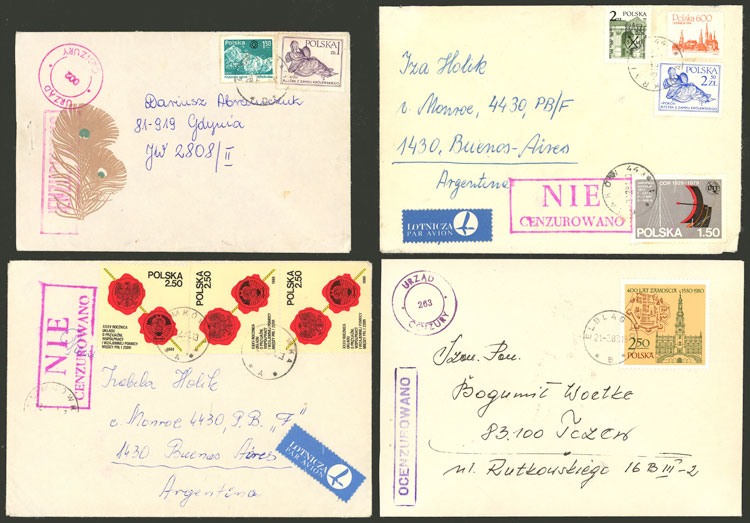 URZĄD
CENZURY
002
POLSKA
1.50
POLSKA 1
ZŁ
Dariusz
81-919 Gdynia
JW 2808/II
2 ZŁ
Polska 600
POLSKA
2 50
ZŁ
Iza Holik
c. Monroe, 4430, PB/F
1430, Buenos-Aires
Argentina
LOTNICZA
PAR AVION
NIE
CENZUROWANO
44
POLSKA 1.50
NIE
CENZUROWANO
POLSKA
2.50
POLSKA
2.50
POLSKA
2.50
XXXV ROCZNICA
UKŁADU
O PRZYJAŹNI,
WSPÓŁPRACY
I WZAJEMNEJ POMOCY
MIĘDZY PRL I ZSRR
Izabela Holik
c. Monroe 4430, P.B. "F"
1430 Buenos Aires
Argentina
LOTNICZA
PAR AVION
URZĄD
263
CENZURY
400 LAT ZAMOŚCIA 1580-1980
250
POLSKA
ELBLĄG
OCENZUROWANO
Szan. Pan.
Bogumił Woelke
83.100 Tczew
ul. Rutkowskiego 16 B III-2